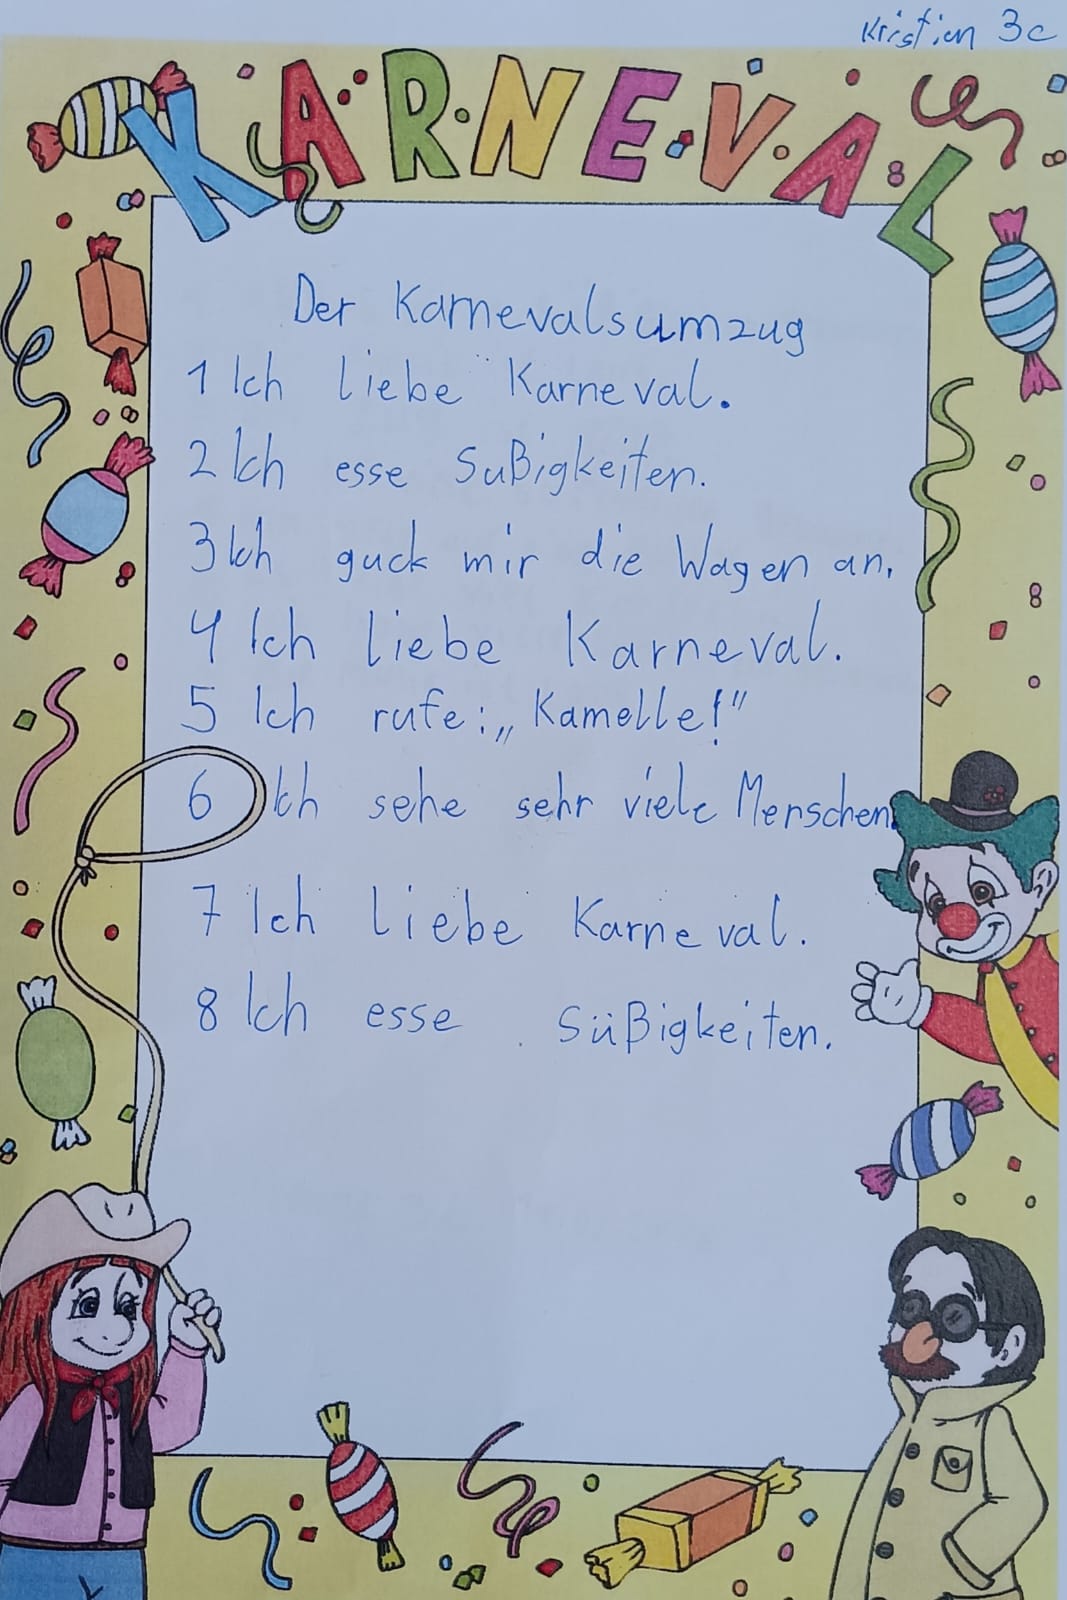 Kristian 3c
KARNEVAL
Der Karnevalsumzug
1 Ich liebe Karneval.
2 Ich esse Sußigkeiten.
3 Ich guck mir die Wagen an.
4 Ich liebe Karneval.
5 Ich rufe: „Kamelle!“
6 Ich sehe sehr viele Merschen
7 Ich liebe Karneval.
8 Ich esse Süßigkeiten.